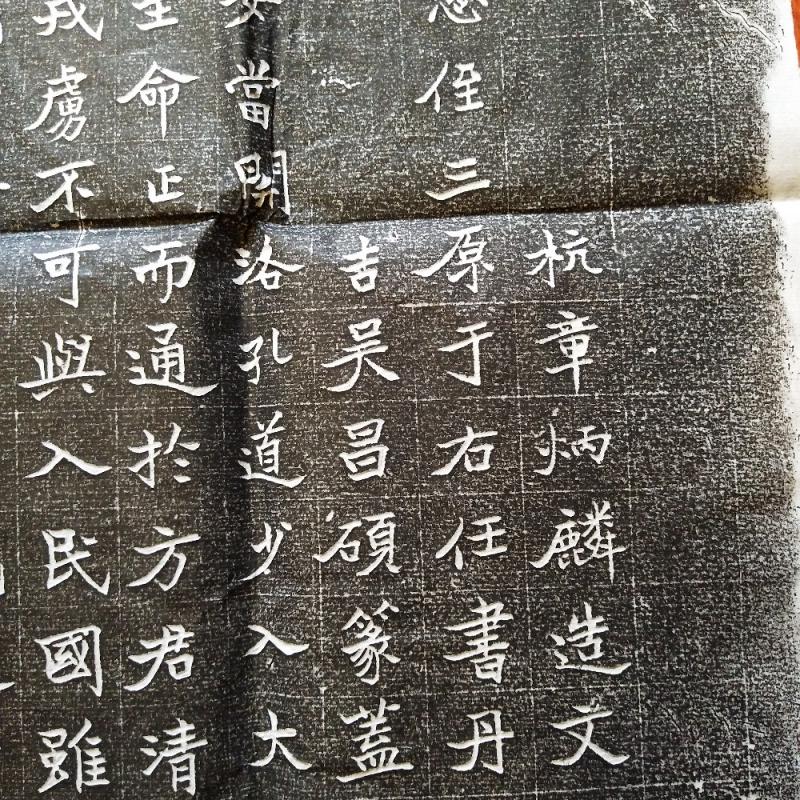 杭章炳麟造文
侄三原于右任書丹
吉吳昌碩篆蓋
當開洛孔道少入大
命正而通於方君清
戎虜不可與入民國雖